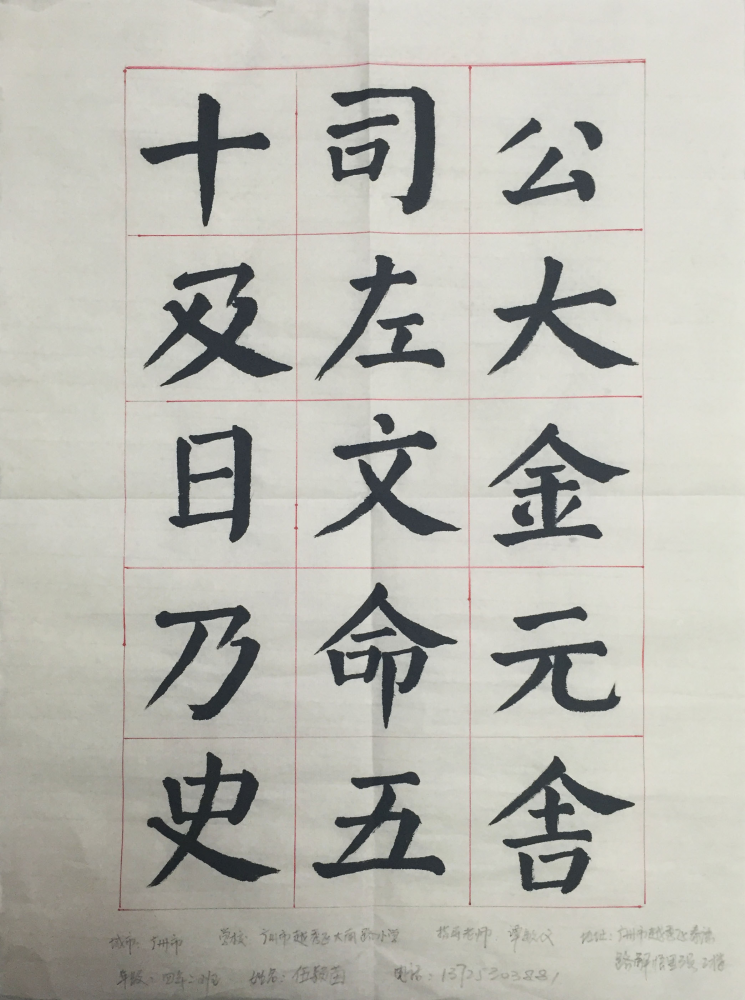 公大金元舍
司左文命五
十及日乃史
城市：广州市 学校：广州市越秀区大南路小学 指导老师 地址：广州市越秀区
年级：四年 姓名：伍 电话：13725303881